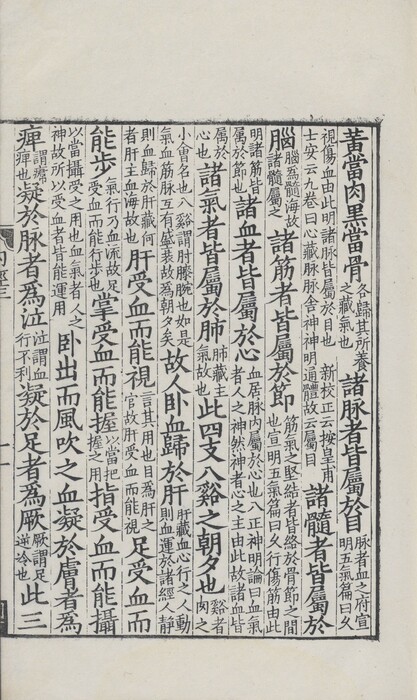 黃當肉黑當骨各歸其所養之藏氣也諸脉者皆屬於目脉者血之府宣明五氣篇曰乆
視傷血由此明諸脉皆屬於目也新校正云按皇甫士安云九卷曰心藏脉脉舍神神明通體故云屬目諸髓者皆屬於
腦腦為髓海故諸髓屬之諸筋者皆屬於節筋氣之堅結者皆絡於骨節之間也宣明五氣篇曰乆行傷筋由此
明諸筋皆屬於節也諸血者皆屬於心血居脉内屬於心也八正神明論曰血氣者人之神然神者心之主由此故諸血皆
屬於心也諸氣者皆屬於肺肺藏主氣故也此四支八谿之朝夕也谿者肉之
小會名也八谿謂肘膝腕也如是氣血筋脉互有盛衰故為朝夕矣故人卧血歸於肝肝藏血心行之人動則血運於諸經人靜
則血歸於肝藏何者肝主血海故也肝受血而能視言其用也目為肝之官故肝受血而能視足受血而
能步氣行乃血流故足受血而能行步也掌受血而能握以當把握之用指受血而能攝
以當攝受之用也血氣者人之神故所以受血者皆能運用卧出而風吹之血凝於膚者為
痺謂𤸷痺也凝於脉者為泣泣謂血行不利凝於足者為厥厥謂足逆冷也此三